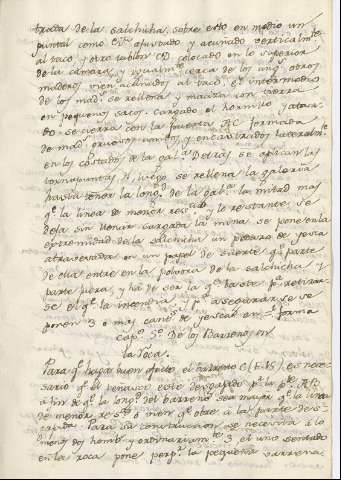 trada de la salchicha. sobre esto en medio un
puntal como CD. ajustado y acuñado verticalmte
al taco y otro tablon CD colocado en lo superior
de la camara, y igualmte cerca de los ang. otros
maderos bien acuñados al taco, el intermedio
de los mads. se rellena y maciza con tierra
en pequeños sacos. Cargado el hornillo y ataca
do se cierra con la puerta BC formada
de mads. gruesos unidos y encaxados lateralmte
en los costados de la gala. Detras se aplican las
tornapuntas H, luego se rellena la galeria
hasta tener la longd. de la gala. la mitad mas
qe. la linea de menor resa. y lo restante se
deja sin llenar cargada la mina se pone en la
extremidad de la salchicha un pedazo de yesca
atravesada en un papel de suerte qe. parte
de ella entre en la polvora de la salchicha y
parte fuera, y ha de ser la qe. baste pa. retirar-
se el qe. la incendia, y pa. asegurarse se
ponen 3 o mas de yesca en forma
capo. 5o. De los Barrenos en
la Roca.
Para qe. hagan buen efecto, el barreno es nece-
sario qe. el peñasco este despegado pr. la pte. AB
a fin de qe. la longd. del barreno sea mayor qe. la linea
de menor resa. o bien qe. obre à la parte des-
Para su construccion se necesita à lo
menos dos homs. y ordinariamte 3 el uno sentado
en la roca pone perpr. la pequeña barrena